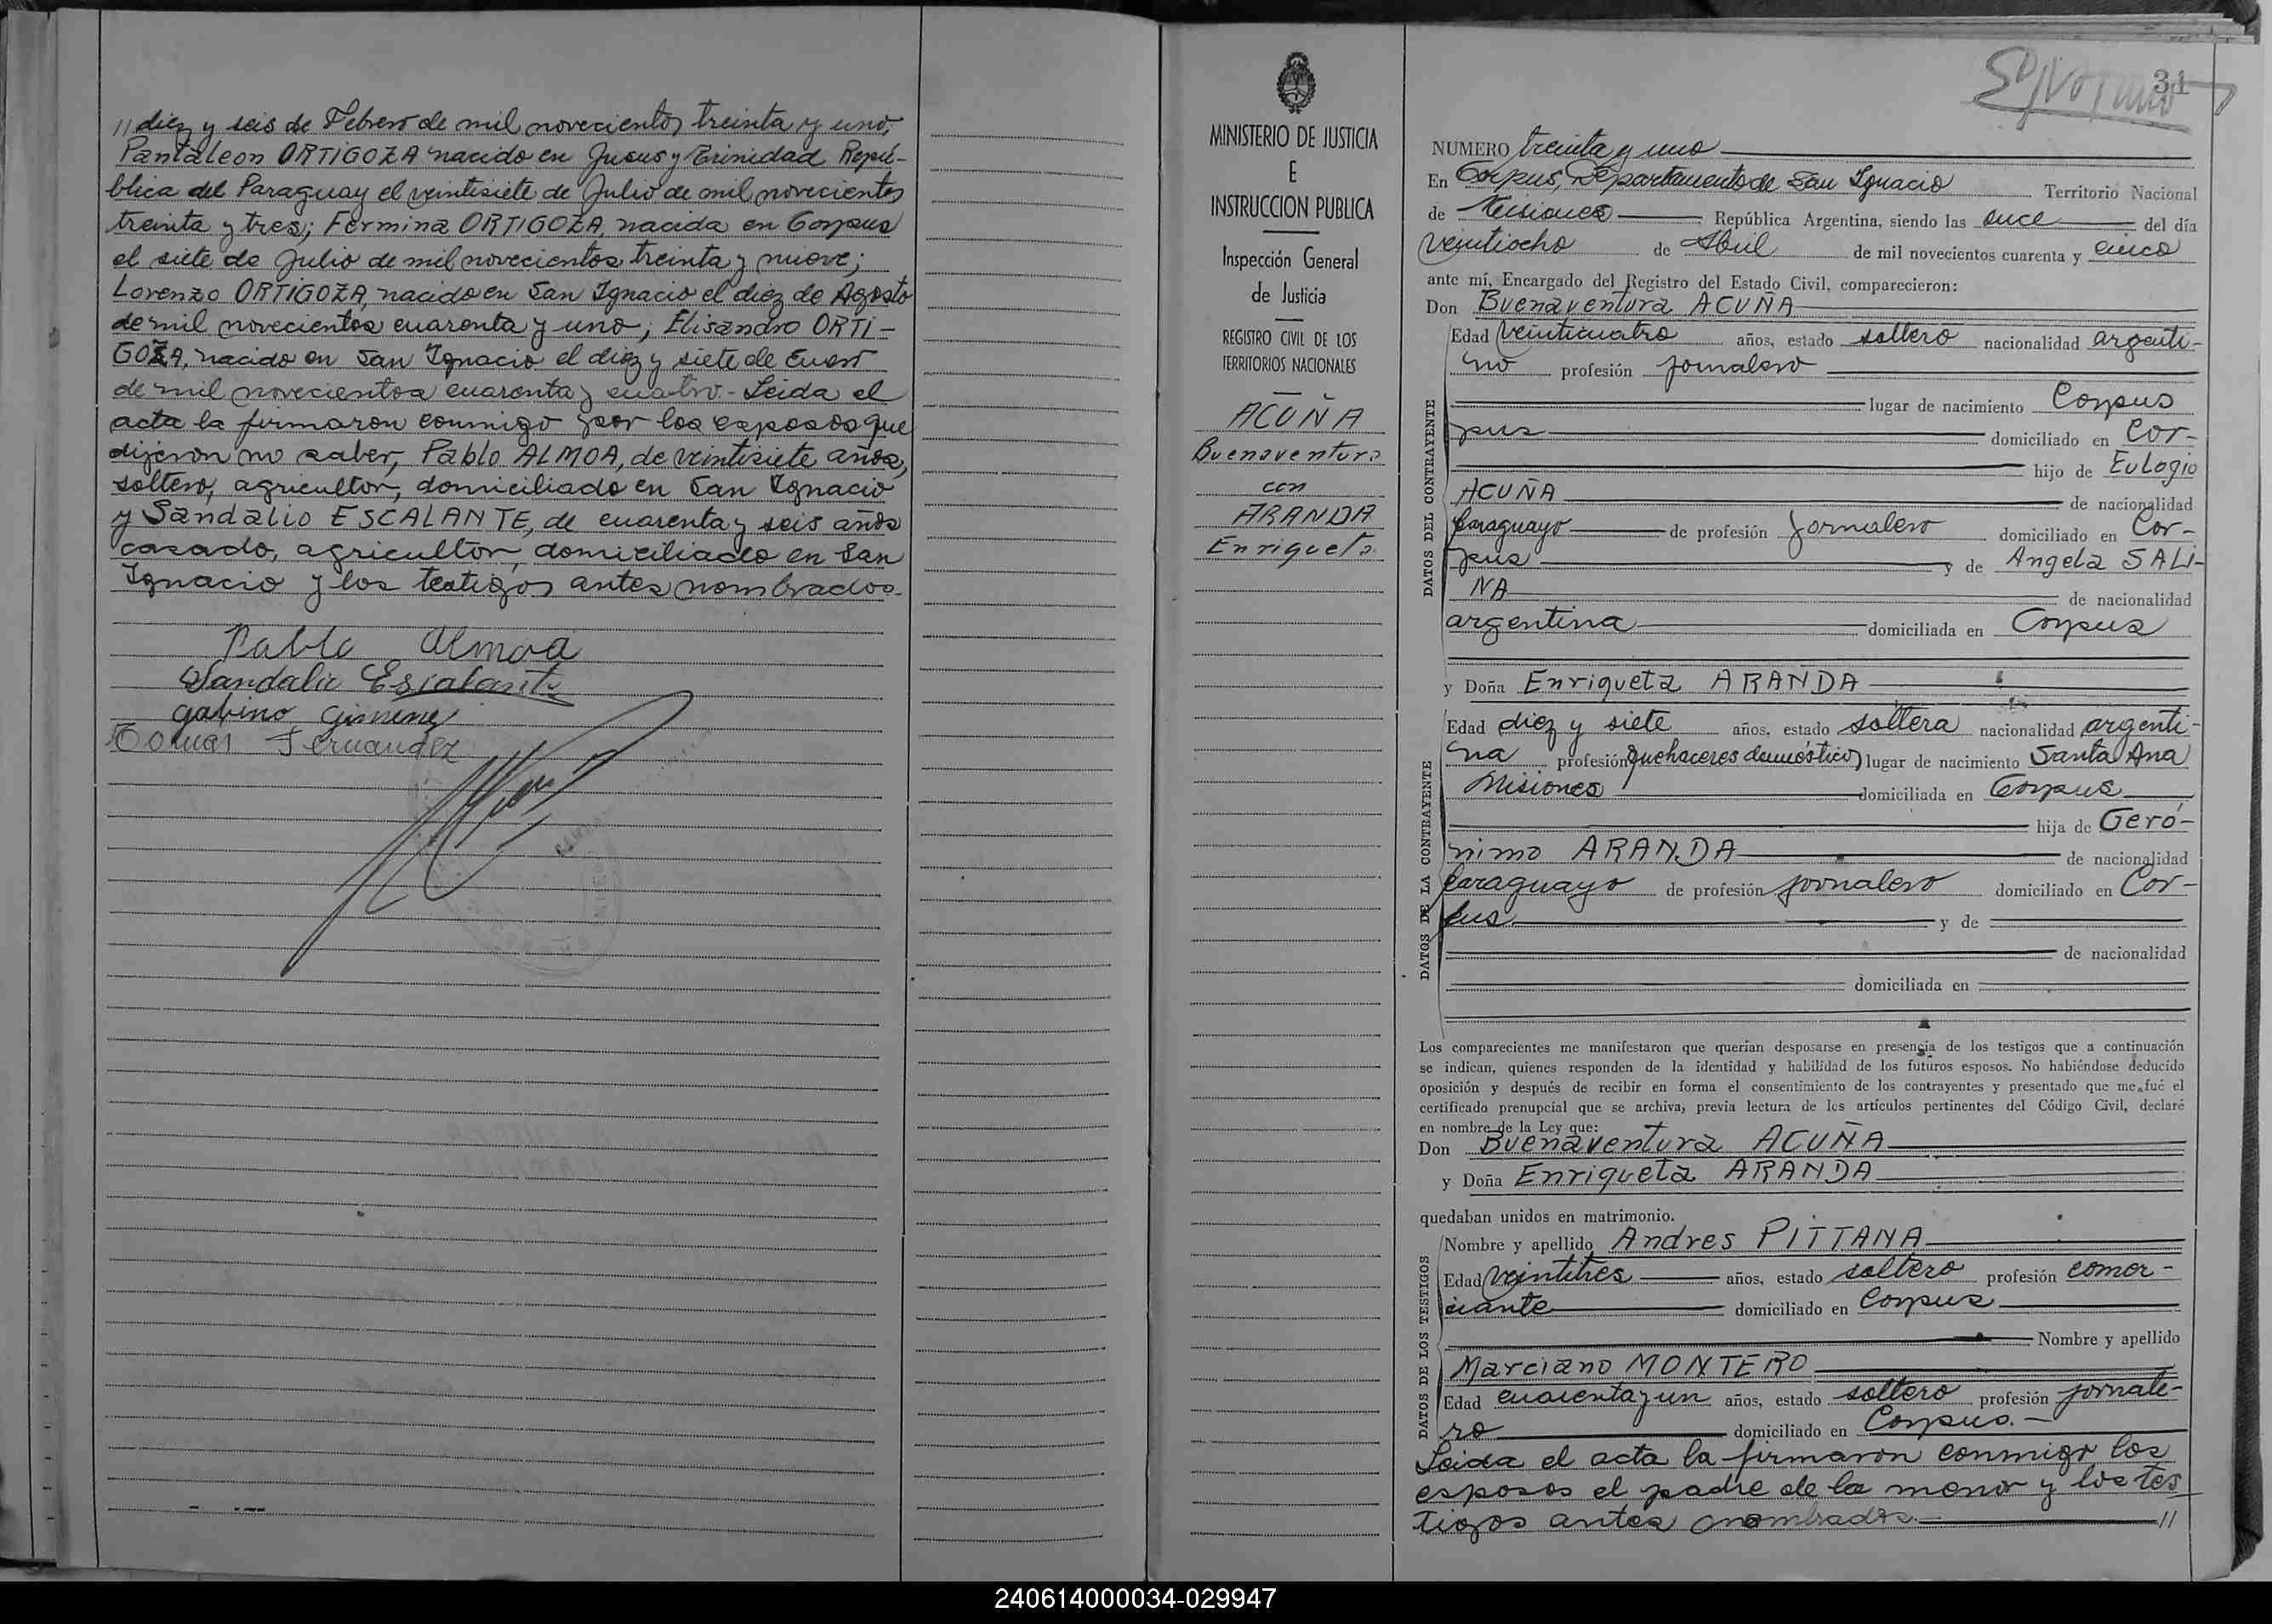 // diez y seis de Febrero de mil novecientos treinta y uno;
Pantaleon ORTIGOZA nacido en Jesus y Trinidad Repú-
blica del Paraguay el veintisiete de Julio de mil novecientos
treinta y tres; Fermina ORTIGOZA, nacida en Corpus
el siete de Julio de mil novecientos treinta y nueve;
Lorenzo ORTIGOZA, nacido en San Ignacio el diez de Agosto
de mil novecientos cuarenta y uno; Elisandro ORTI-
GOZA, nacido en San Ignacio el diez y siete de Enero
de mil novecientos cuarenta y cuatro.- Leida el
acta la firmaron conmigo por los esposos que
dijeron no saber, Pablo ALMOA, de veintisiete años,
soltero, agricultor, domiciliado en San Ignacio
y Sandalio ESCALANTE, de cuarenta y seis años
casado, agricultor, domiciliado en San
Ignacio y los testigos antes nombrados.
Pablo Almoa
Sandalio Escalante
gabino Gimenez
Tomas Fernandez
MINISTERIO DE JUSTICIA
E
INSTRUCCION PUBLICA
Inspección General
de Justicia
REGISTRO CIVIL DE LOS
TERRITORIOS NACIONALES
ACUÑA
Buenaventura
con
ARANDA
Enriqueta
31
NUMERO treinta y uno
En Corpus, Departamento de San Ignacio Territorio Nacional
de Misiones República Argentina, siendo las once del día
veintiocho de Abril de mil novecientos cuarenta y cinco
ante mí, Encargado del Registro del Estado Civil, comparecieron:
Don Buenaventura ACUÑA
DATOS DEL CONTRAYENTE
Edad veinticuatro años, estado soltero nacionalidad argenti-
no profesión jornalero
lugar de nacimiento Corpus
pus domiciliado en Cor-
hijo de Eulogio
ACUÑA de nacionalidad
paraguayo de profesión jornalero domiciliado en Cor-
pus y de Angela SALI-
NA de nacionalidad
argentina domiciliada en Corpus
y Doña Enriqueta ARANDA
DATOS DE LA CONTRAYENTE
Edad diez y siete años, estado soltera nacionalidad argenti-
na profesión quehaceres domésticos lugar de nacimiento Santa Ana
Misiones domiciliada en Corpus
hija de Geró-
nimo ARANDA de nacionalidad
paraguayo de profesión jornalero domiciliado en Cor-
pus y de
de nacionalidad
domiciliada en
Los comparecientes me manifestaron que querían desposarse en presencia de los testigos que a continuación
se indican, quienes responden de la identidad y habilidad de los futuros esposos. No habiéndose deducido
oposición y después de recibir en forma el consentimiento de los contrayentes y presentado que me fué el
certificado prenupcial que se archiva, previa lectura de los artículos pertinentes del Código Civil, declaré
en nombre de la Ley que:
Don Buenaventura ACUÑA
y Doña Enriqueta ARANDA
quedaban unidos en matrimonio.
DATOS DE LOS TESTIGOS
Nombre y apellido Andres PITTANA
Edad veintitres años, estado soltero profesión comer-
ciante domiciliado en Corpus
Nombre y apellido
Marciano MONTERO
Edad cuarenta y un años, estado soltero profesión jornale-
ro domiciliado en Corpus.-
Leida el acta la firmaron conmigo los
esposos el padre de la menor y los tes
tigos antes nombrados. //
240614000034-029947